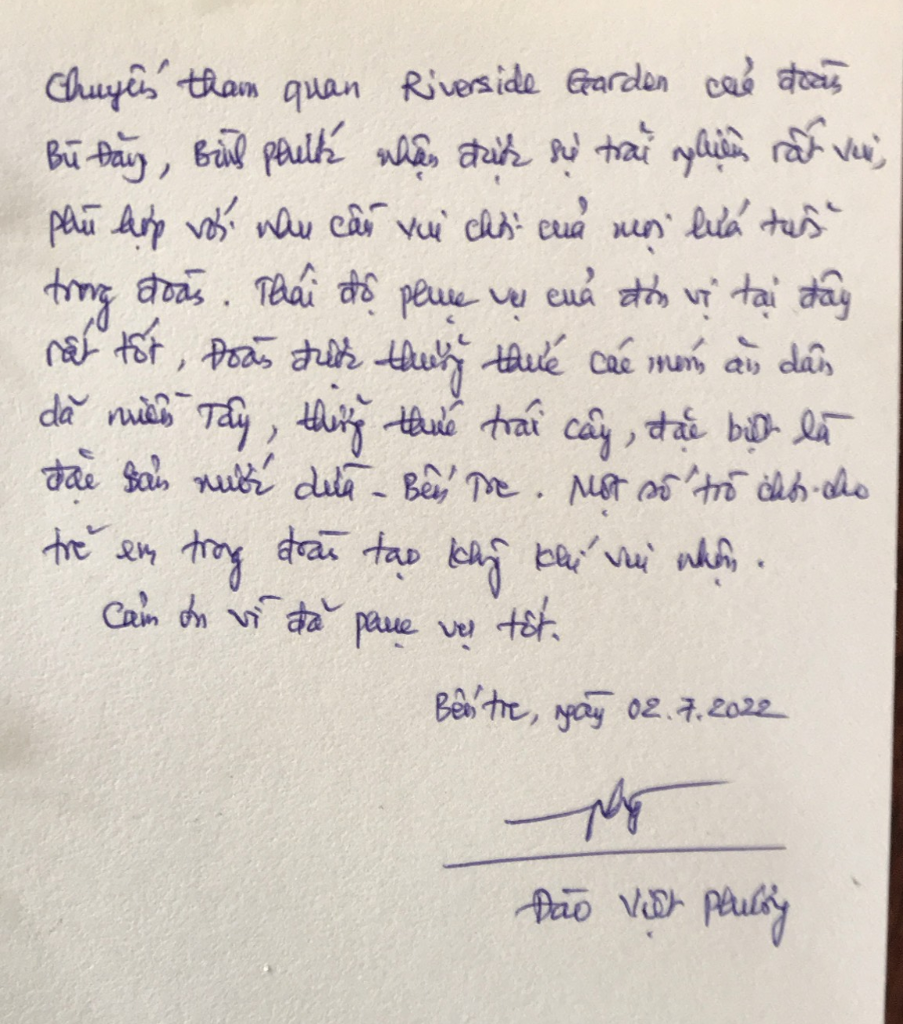 Chuyến tham quan Riverside Garden của đoàn
Bù Đăng, Bình Phước nhận được sự trải nghiệm rất vui,
phù hợp với nhu cầu vui chơi của mọi lứa tuổi
trong đoàn. Thái độ phục vụ của đơn vị tại đây
rất tốt, Đoàn được thưởng thức các món ăn dân
dã miền Tây, thưởng thức trái cây, đặc biệt là
đặc sản nước dừa - Bến Tre. Một số trò chơi cho
trẻ em trong đoàn tạo không khí vui nhộn.
Cảm ơn vì đã phục vụ tốt.
Bến tre, ngày 02.7.2022
Đào Việt Phương